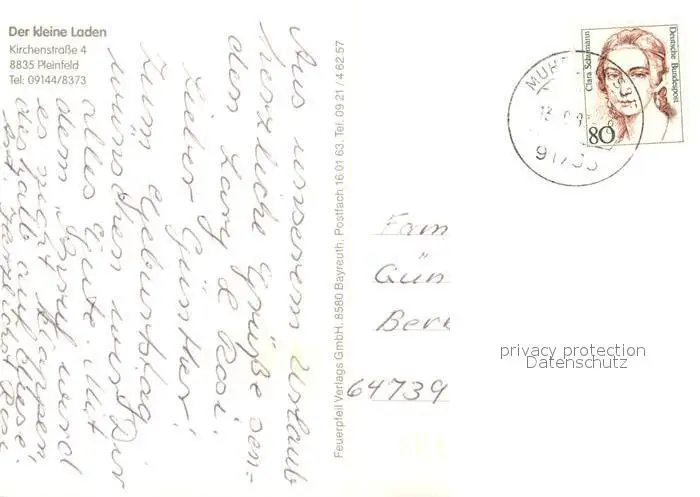 Der kleine Laden
Kirchenstraße 4
8835 Pleinfeld
Tel: 09144/8373
Aus unserem Urlaub
herzliche Grüße sen-
den Lary & Rosi.
Lieber Günther!
Zum Geburtstag
wünschen wir Dir
alles Gute. Mit
dem "Brief" wird
es nicht klappen
deshalb auf diese
Feuerpfeil Verlags GmbH, 8580 Bayreuth, Postfach 16 01 63, Tel. 09 21 / 4 62 57
Clara Schumann
Deutsche Bundespost
80
MUH
91735
Fam
Gün
Ber
64739
privacy protection
Datenschutz